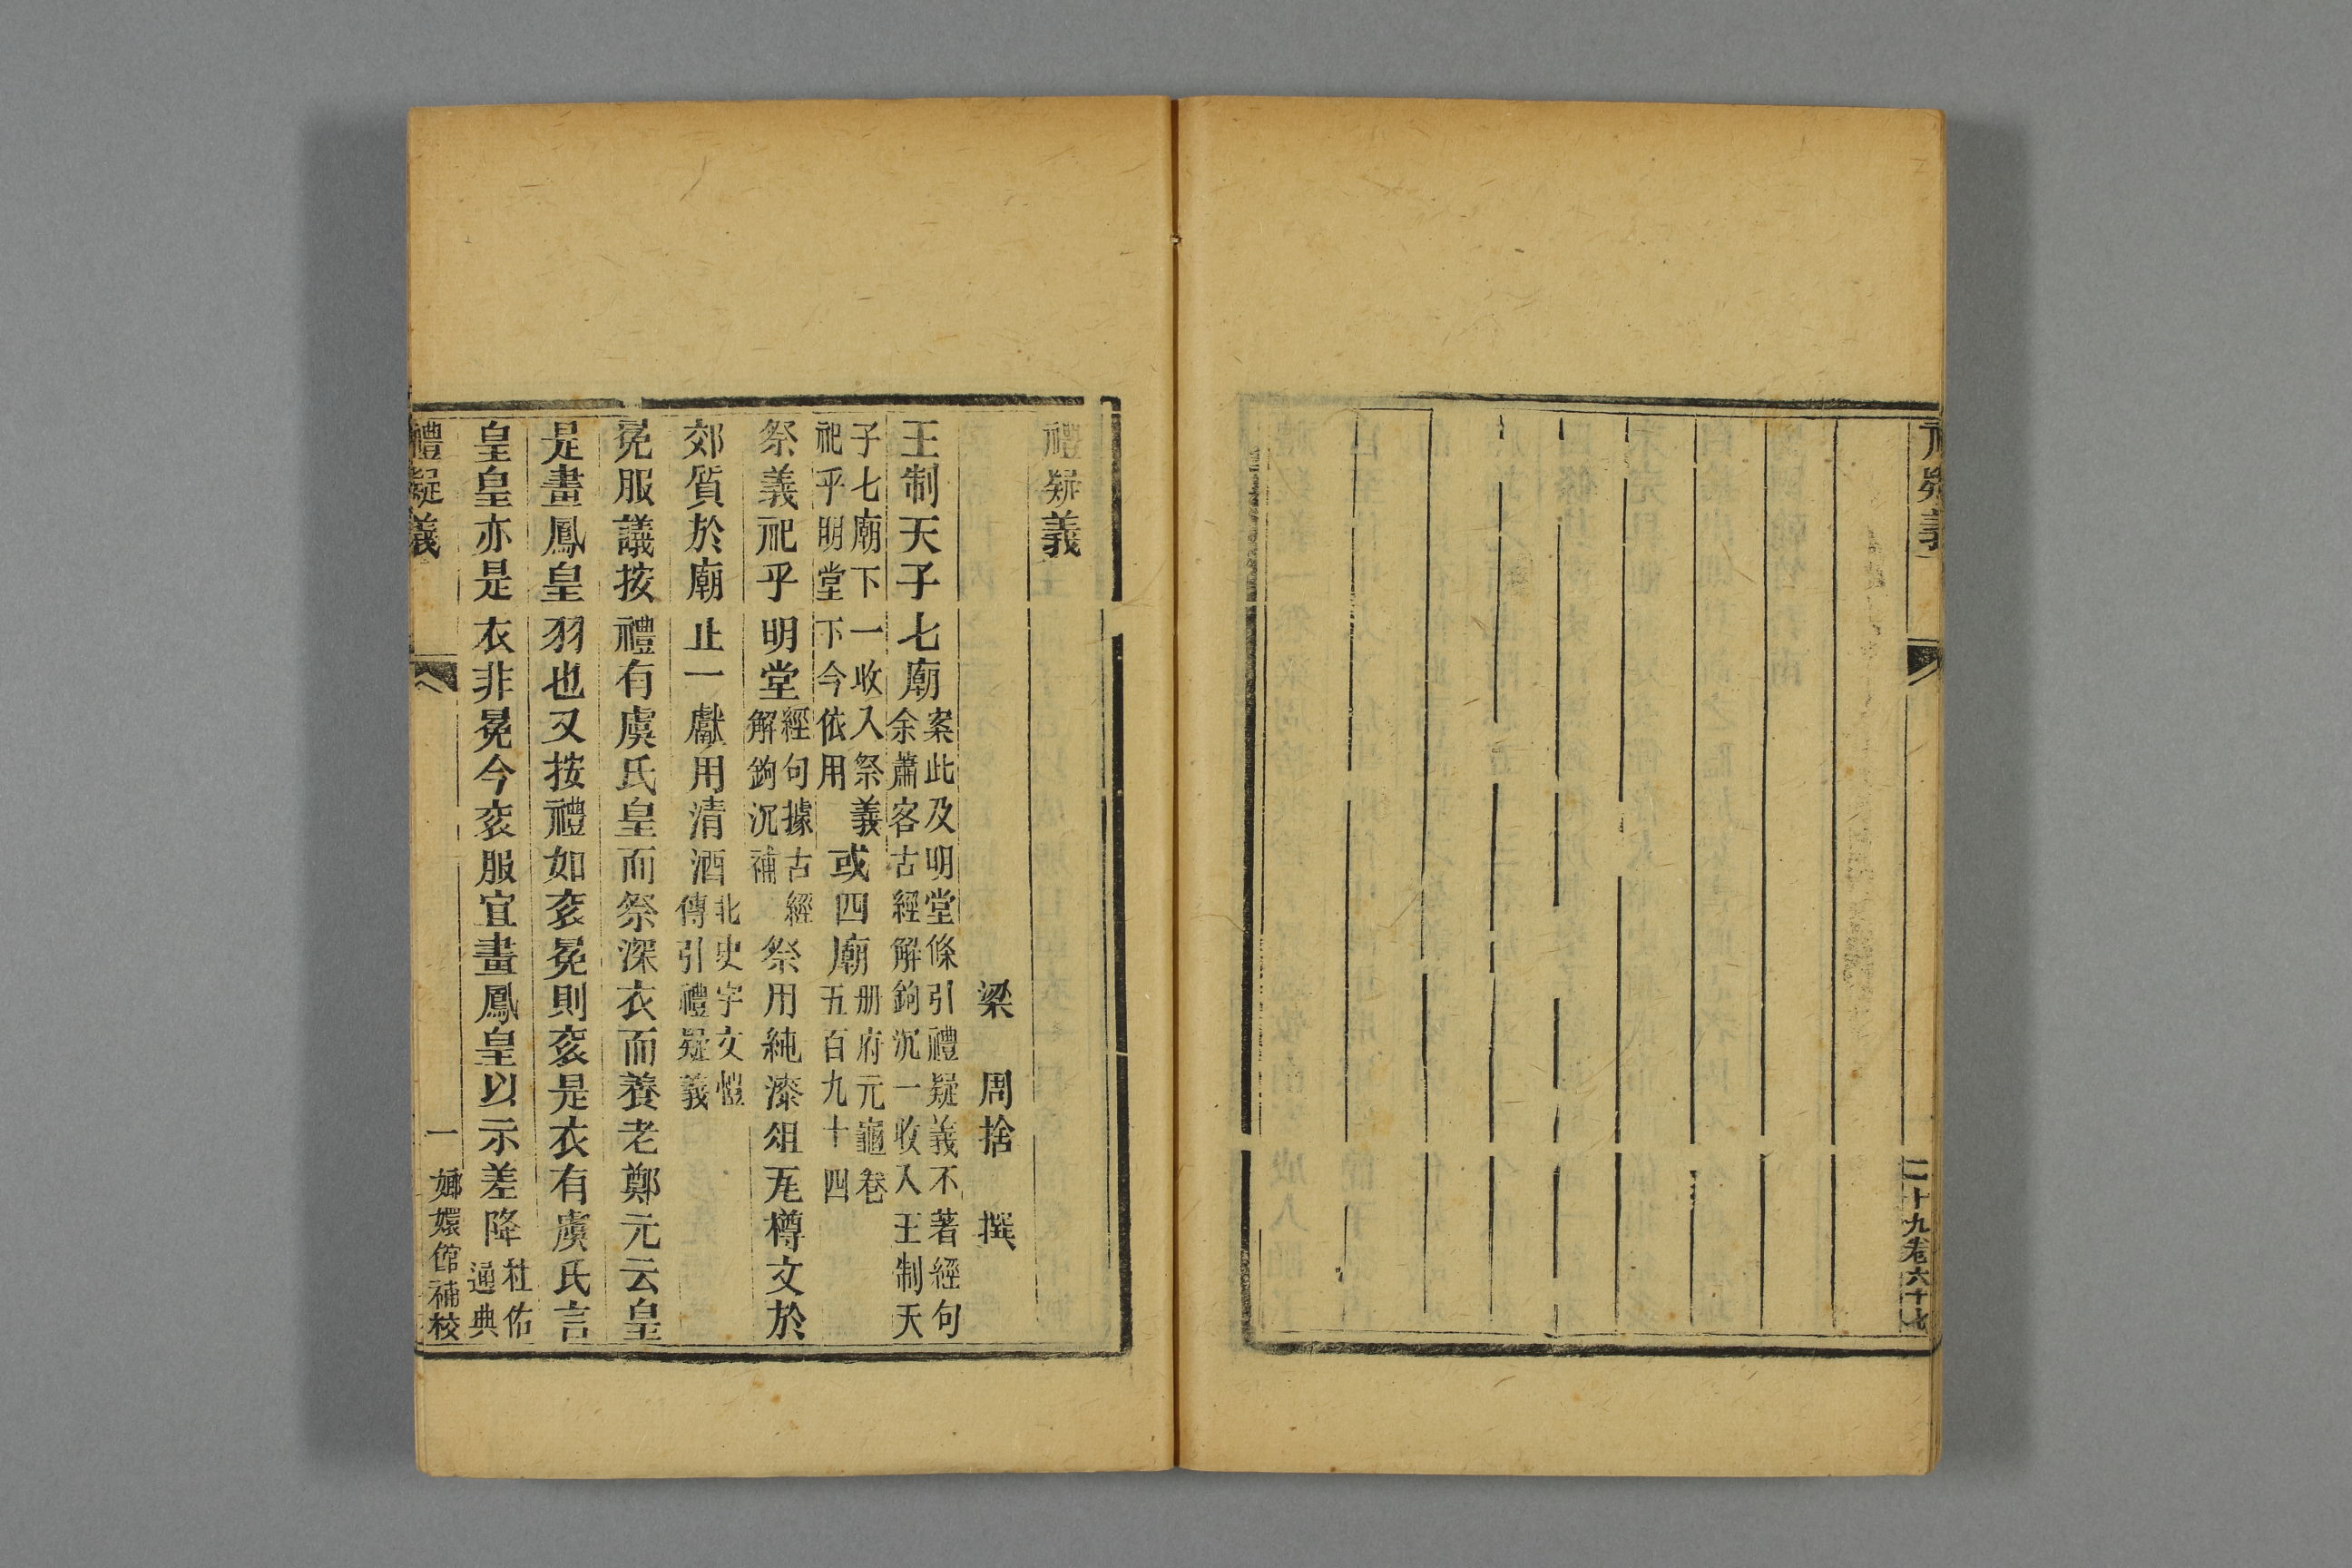 疑義
二十九卷六十七
禮疑義
梁 周捨 撰
王制天子七廟案此及明堂條引禮疑義不著經句
余蕭客古經解鉤沉一收入王制天
子七廟下一收入祭義
祀乎明堂下今依用
或四廟册府元龜卷
五百九十四
祭義祀乎明堂經句據古經
解鉤沉補
祭用純漆俎瓦樽文於
郊質於廟止一獻用清酒北史宇文愷
傳引禮疑義
冕服議按禮有虞氏皇而祭深衣而養老鄭元云皇
是畫鳳皇羽也又按禮如衮冕則衮是衣有虞氏言
皇皇亦是衣非冕今衮服宜畫鳳皇以示差降杜佑
通典
禮疑義
一
嫏嬛館補校